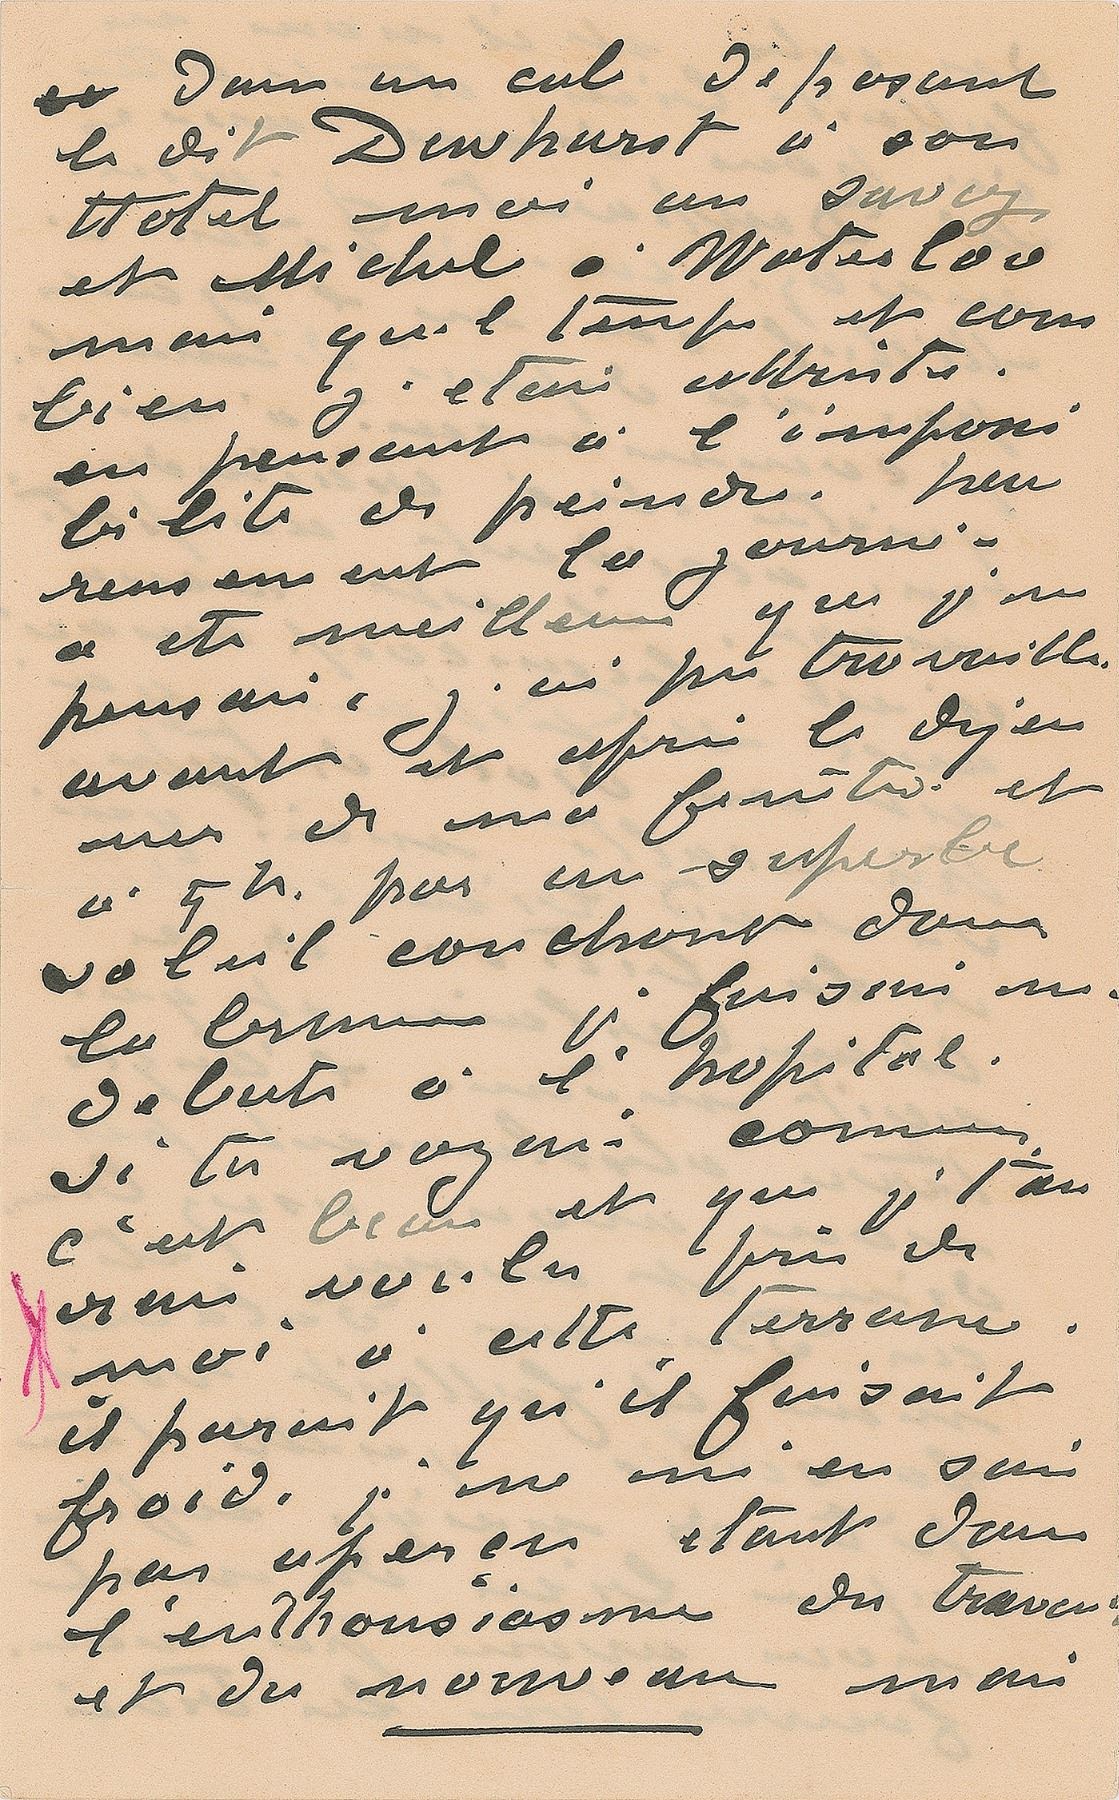 dans un cab deposant
le dit Dewhurst à son
Hotel moi au Savoy
et Michel à Waterloo
mais quel temps et com
bien j'etais attristé.
en pensant à l'impossi
bilité de peindre. heu
reusement la journée
a eté meilleure que je ne
pensais, j'ai pu travailler
avant et après le dejeu
ner de ma fenêtre et
à 5 h. par un superbe
soleil couchant dans
la brume je faisais mes
debuts à l'hopital.
si tu voyais comme
c'est beau et que je t'au
rais voulu près de
moi à cette terrasse.
il parait qu'il faisait
froid. je ne m'en suis
pas aperçu etant dans
l'enthousiasme du travail
et du nouveau mais